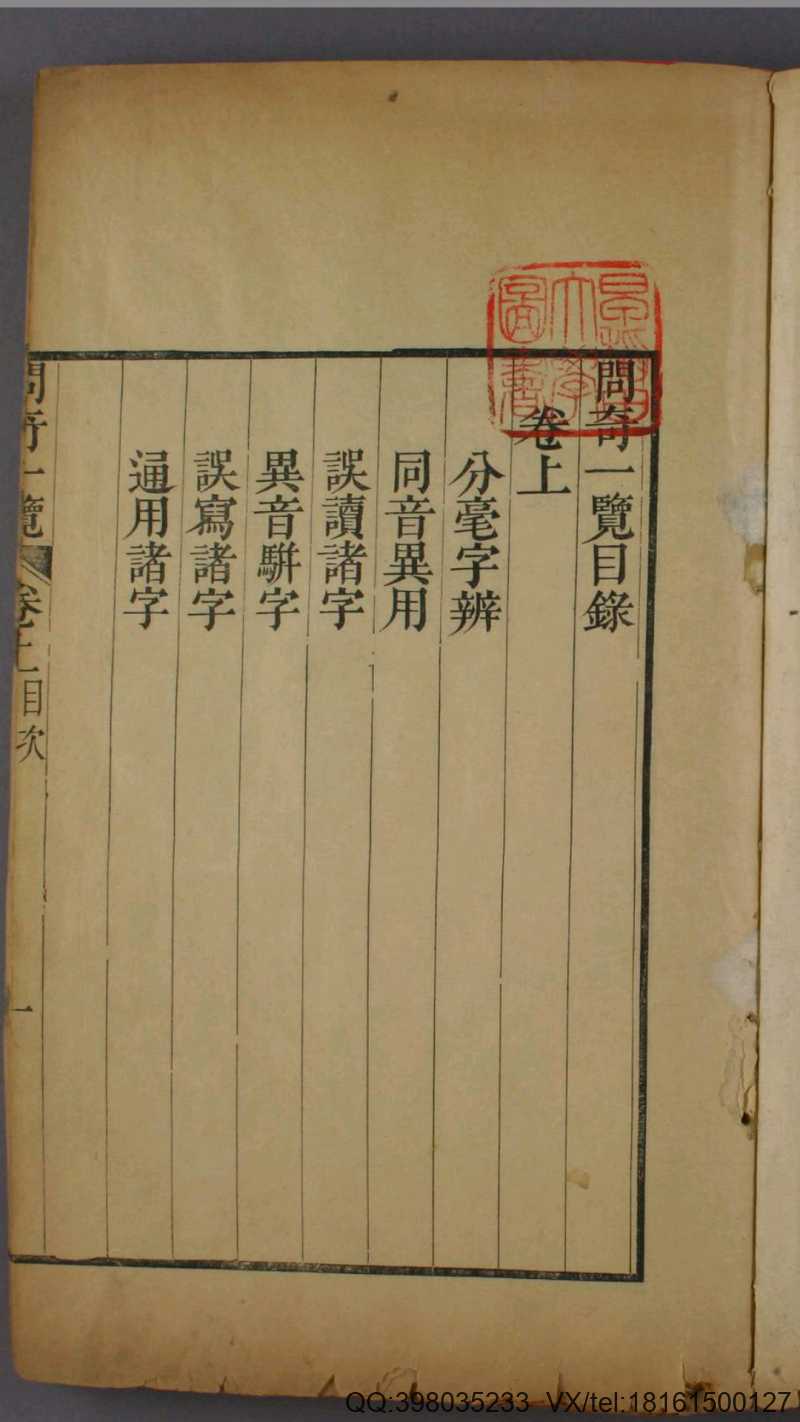 問奇一覽目錄
卷上
分毫字辨
同音異用
誤讀諸字
異音駢字
誤寫諸字
通用諸字
問奇一覽 卷上目次 一
QQ:398035233 VX/tel:18161500127